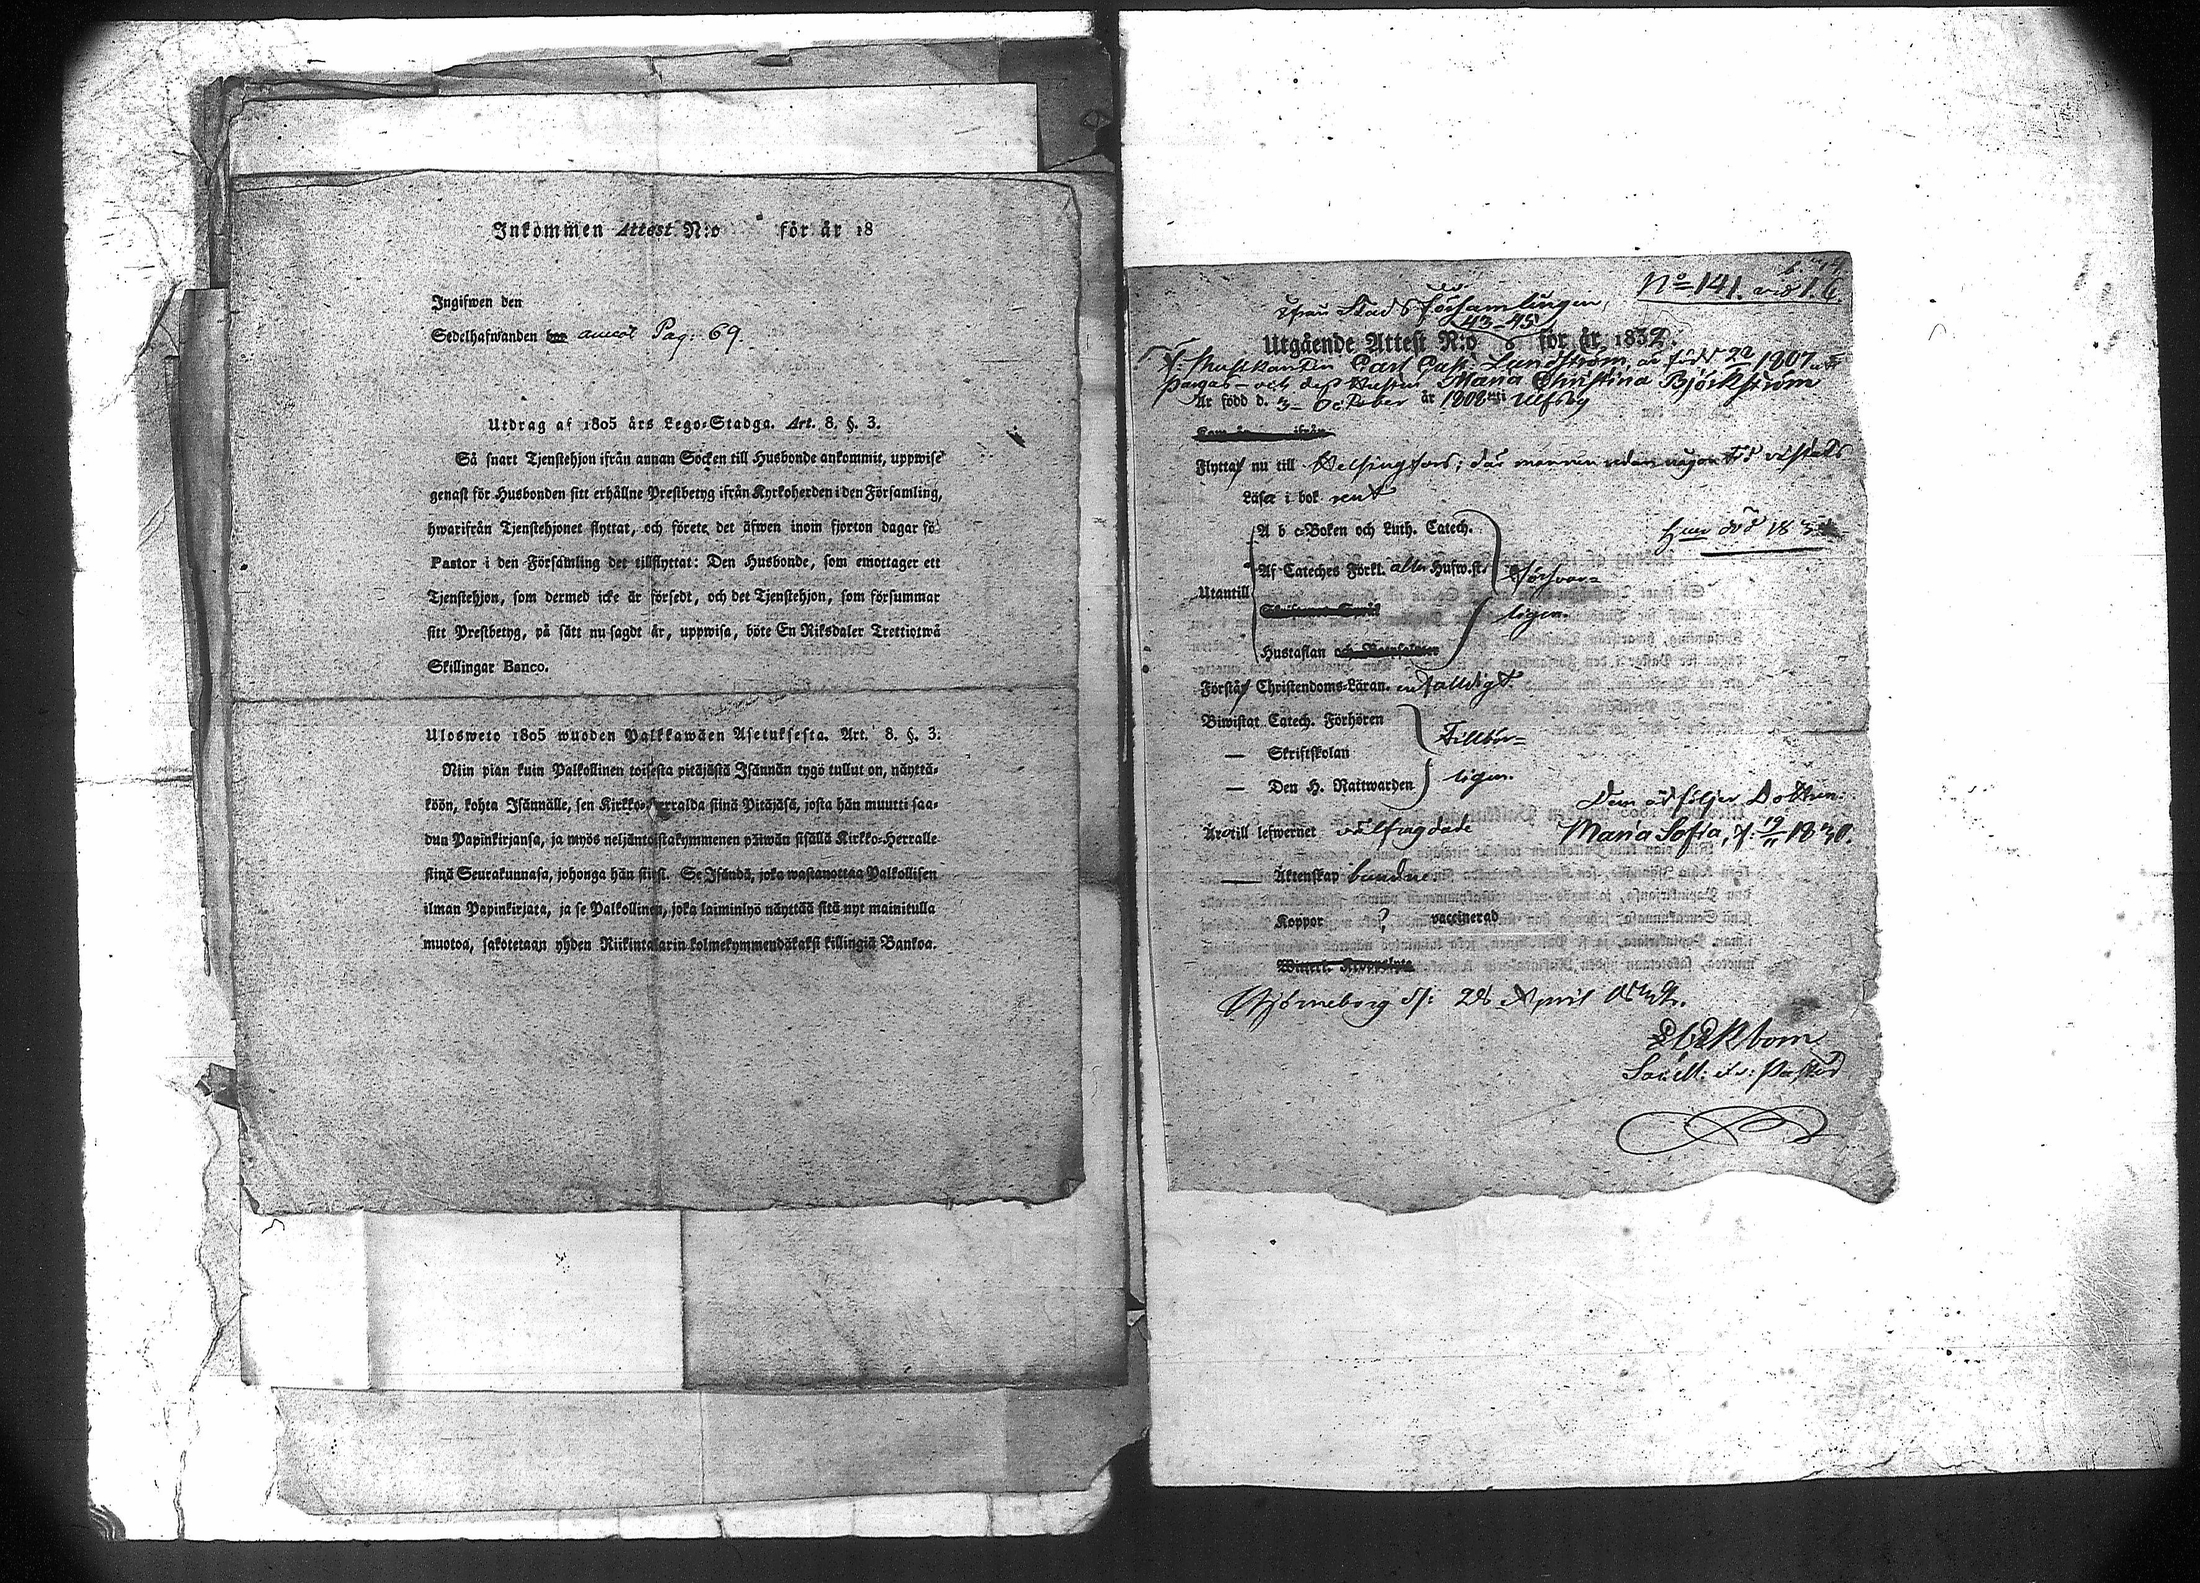 Inkommen Attest N:o för år 18
Ingifwen den
Sedelhafwanden bor Pag: 69
Utdrag af 1805 års Lego-Stadga. Art. 8. §. 3.
Så snart Tjenstehjon ifrån annan Socken till Husbonde ankommit, uppwise
genast för Husbonden sitt erhållne Prestbetyg ifrån Kyrkoherden i den Församling,
hwarifrån Tjenstehjonet flyttat, och förete det äfwen inom fjorton dagar fö
Pastor i den Församling det tillflyttat: Den Husbonde, som emottager ett
Tjenstehjon, som dermed icke är försedt, och det Tjenstehjon, som försummar
sitt Prestbetyg, på sätt nu sagdt är, uppwisa, böte En Riksdaler Trettiotwå
Skillingar Banco.
Ulosweto 1805 wuoden Palkkawäen Asetuksesta. Art. 8. §. 3.
Niin pian kuin Palkollinen toisesta pitäjästä Isännän tygö tullut on, näyttä-
köön, kohta Isännälle, sen Kirkko-Herralda siinä Pitäjäsä, josta hän muutti saa-
dun Papinkirjansa, ja myös neljäntoistakymmenen päiwän sisällä Kirkko-Herralle
siinä Seurakunnasa, johonga hän siirst. Se Isändä, joka wastanottaa Palkollisen
ilman Papinkirjata, ja se Palkollinen, joka laiminlyö näyttää sitä nyt mainitulla
muotoa, sakotetaan yhden Riikintalarin kolmekymmendäkaksi killingiä Bankoa.
No 141.
Från Stads Församlingen,
43-45
Utgående Attest N:o för år 1832.
f. Musikanten Carl Gust. Lundström, är född 22 1807 i
Pargas - och dess Hustru Maria Christina Björkström
Är född d. 3 - October år 1808 uti Ulfsby
Kom år ifrån
Flyttar nu till Helsingfors; där mannen redan någon tid vistats
Läser i bok rent
A b c-Boken och Luth. Catech.
Hon död 183
Af Cateches Förkl. alla Hufwst.
Försvar=
Utantill
ligen.
Hustaflan och
Förstår Christendoms-Läran. enfalldigt.
Biwistat Catech. Förhören
Tillbör=
— Skriftskolan
ligen.
— Den H. Nattwarden
Dem åtföljer Dottren:
Äro till lefwernet välfragdade
Maria Sofia, f. 19/11 1830.
— Äktenskap bundne
Koppor ? vaccinerad
Björneborg d: 28 April 1832.